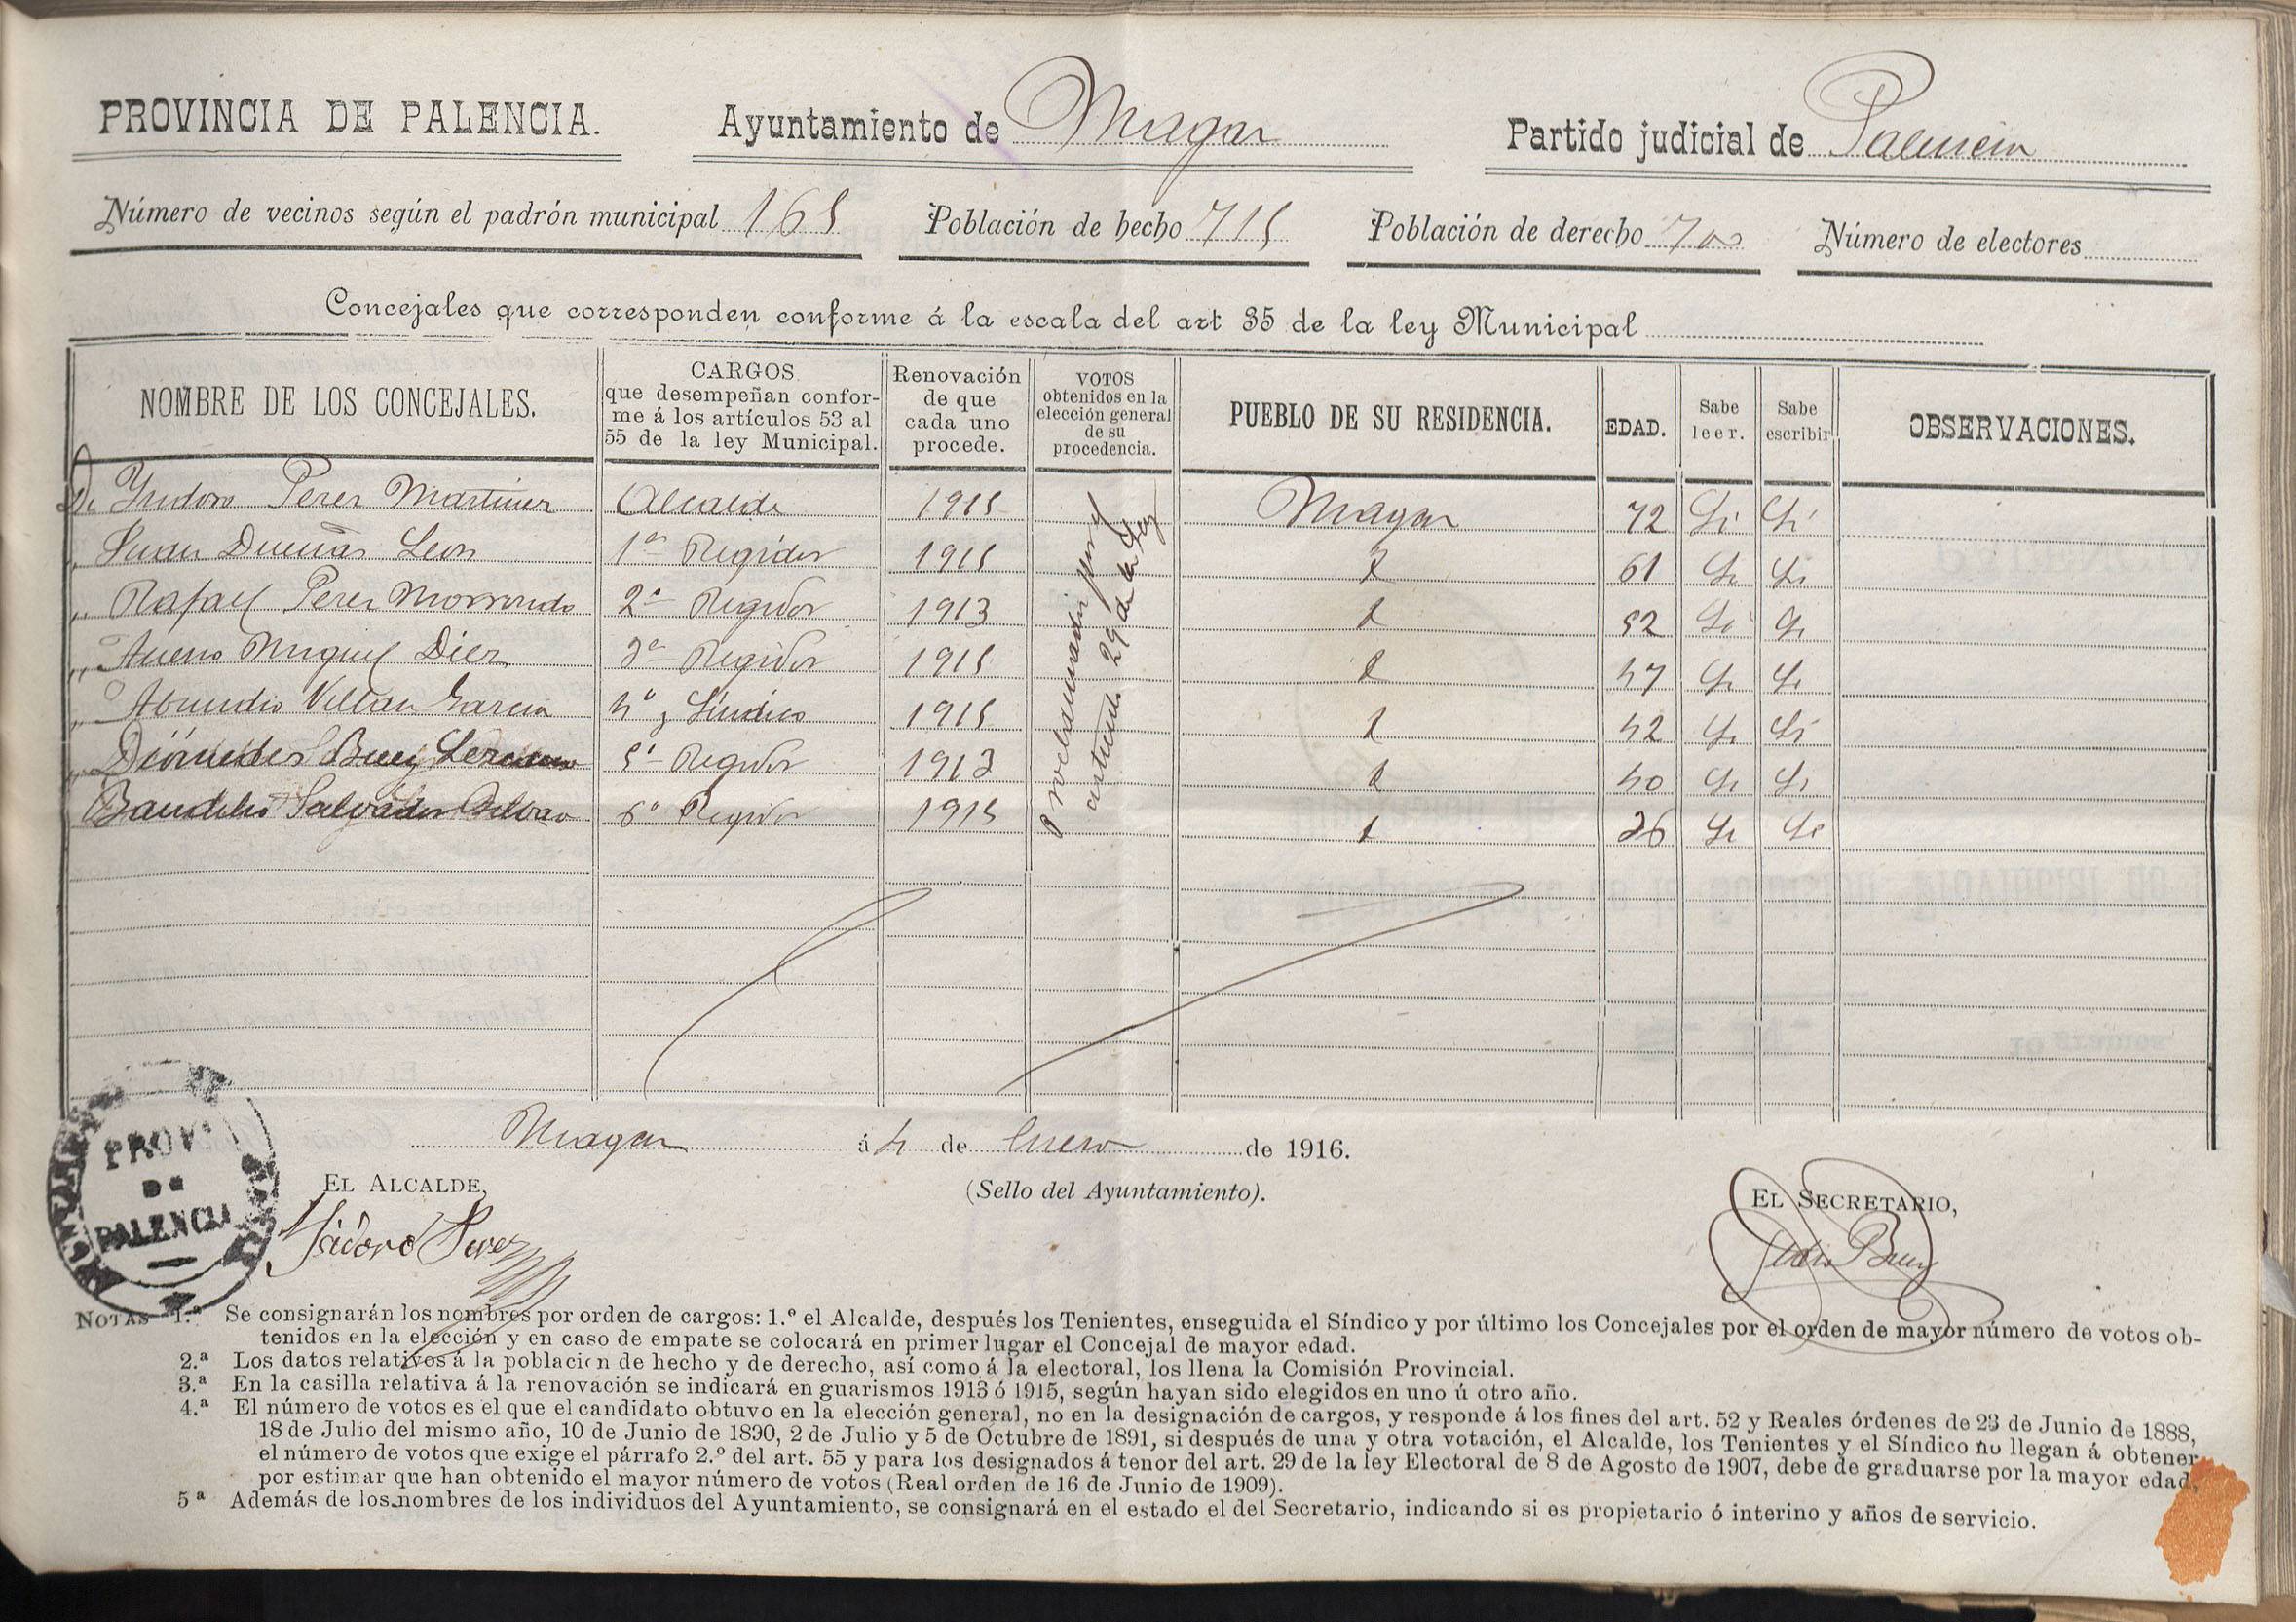 PROVINCIA DE PALENCIA. Ayuntamiento de Magaz Partido judicial de Palencia
Número de vecinos según el padrón municipal 165 Población de hecho 715 Población de derecho Número de electores
Concejales que corresponden conforme á la escala del art 35 de la ley Municipal
NOMBRE DE LOS CONCEJALES.
CARGOS
que desempeñan confor-
me á los artículos 53 al
55 de la ley Municipal.
Renovación
de que
cada uno
procede.
VOTOS
obtenidos en la
elección general
de su
procedencia.
PUEBLO DE SU RESIDENCIA.
EDAD.
Sabe
leer.
Sabe
escribir
OBSERVACIONES.
Dn Ysidoro Perez Martinez Alcalde 1915 Magaz 72 Si Si
" Juan Dueñas Leon 1er Regidor 1915 61 Si Si
" Rafael Perez Morrondo 2º Regidor 1913 52 Si Si
" Miguel Diez 3er Regidor 1915 47 Si Si
" Abundio Villan Garcia 4º y Síndico 1915 42 Si Si
" Diomedes Buey 5º Regidor 1913 40 Si Si
Baudelio Salvador 6º Regidor 1915 26 Si Si
Proclamados por el
artículo 29 de la Ley
Magaz á 4 de Enero de 1916.
EL ALCALDE,
(Sello del Ayuntamiento).
EL SECRETARIO,
Isidoro Perez
Buey
PROV.
DE
PALENCIA
NOTAS 1.ª Se consignarán los nombres por orden de cargos: 1.º el Alcalde, después los Tenientes, enseguida el Síndico y por último los Concejales por el orden de mayor número de votos ob-
tenidos en la elección y en caso de empate se colocará en primer lugar el Concejal de mayor edad.
2.ª Los datos relativos á la población de hecho y de derecho, así como á la electoral, los llena la Comisión Provincial.
3.ª En la casilla relativa á la renovación se indicará en guarismos 1913 ó 1915, según hayan sido elegidos en uno ú otro año.
4.ª El número de votos es el que el candidato obtuvo en la elección general, no en la designación de cargos, y responde á los fines del art. 52 y Reales órdenes de 23 de Junio de 1888,
18 de Julio del mismo año, 10 de Junio de 1890, 2 de Julio y 5 de Octubre de 1891, si después de una y otra votación, el Alcalde, los Tenientes y el Síndico no llegan á obtener
el número de votos que exige el párrafo 2.º del art. 55 y para los designados á tenor del art. 29 de la ley Electoral de 8 de Agosto de 1907, debe de graduarse por la mayor edad,
por estimar que han obtenido el mayor número de votos (Real orden de 16 de Junio de 1909).
5ª Además de los nombres de los individuos del Ayuntamiento, se consignará en el estado el del Secretario, indicando si es propietario ó interino y años de servicio.